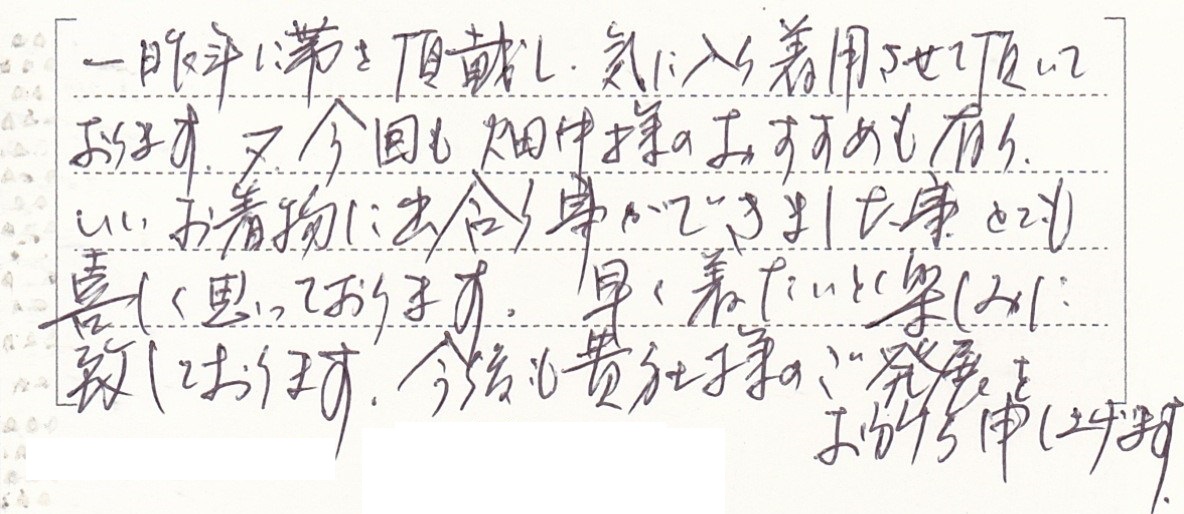 一昨年に帯を頂戴し、気に入り着用させて頂いて
おります。又、今回も畑中様のおすすめも有り、
いいお着物に出合う事ができました事とても
喜しく思っております。早く着たいと楽しみに
致しております。今後も貴社様のご発展を
お祈り申し上げます。